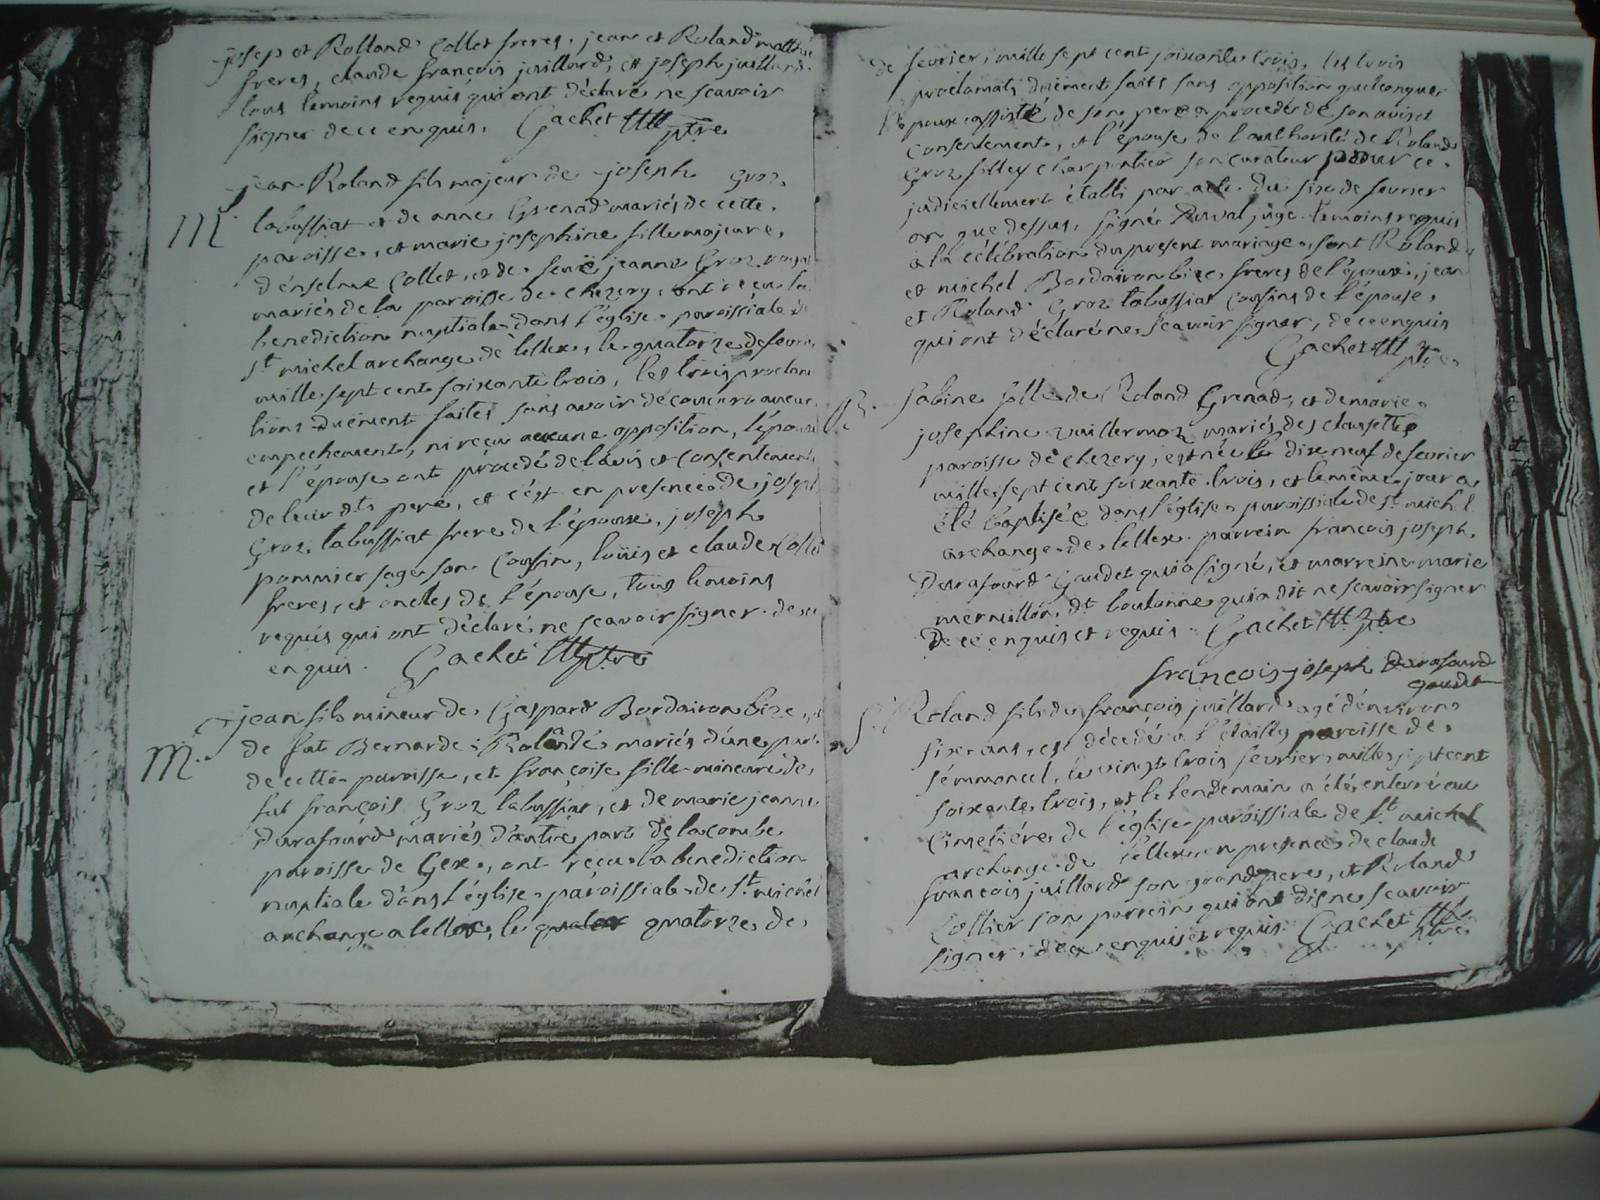 joseph et Rolland Collet freres, jean et Roland mathieu
freres, claude françois juillard, et joseph juillard
tous temoins requis qui ont déclaré ne scavoir
signer de ce enquis. Gachet ptre
jean Roland fils majeur de joseph Groz
M
labussiat et de anne Grenad mariés de cette
paroisse, et marie josephine fille majeure,
d'enselme Collet, et de feuë jeanne Groz
mariés de la paroisse de chezery, ont reçu la
benediction nuptiale dans l'église paroissiale de
st michel archange de lellex, le quatorze de fevrier
mille sept cent soixante trois, les trois proclama
tions duëment faites sans avoir découvert aucun
empechement, ni reçu aucune opposition, l'époux
et l'épouse ont procedé de l'avis et consentement
de leur dts pere, et c'est en presence de joseph
Groz labussiat frere de l'époux, joseph
pommier sage son cousin, loüis et claude Collet
freres, et oncles de l'épouse, tous temoins
requis qui ont déclaré ne scavoir signer de ce
enquis. Gachet ptre
jean fils mineur de Gaspard Bordairon bize, et
M.
de fut Bernarde Rolandé mariés d'une part
de cette paroisse, et françoise fille mineure de
fut françois Groz labussiat, et de marie jeanne
Durafourd mariés d'autre part de lacombe
paroisse de Gex, ont reçu la benediction
nuptiale dans l'église paroissiale de st michel
archange a lellex, le quator quatorze de
de fevrier, mille sept cent soixante trois, les trois
proclamats duëment faits sans opposition quelconque
l'epoux assisté de son pere procede de son avis et
consentement, et l'épouse de l'authorité de Roland
Groz filley charpentier son curateur pour ce
judiciellement établi par acte du six de fevrier
an que dessus, signé Duval juge. temoins requis
a la célébration du present mariage, sont Roland
et michel Bordairon bize freres de l'époux, jean
et Roland Groz labussiat cousins de l'épouse,
qui ont déclaré ne scavoir signer, de ce enquis
Gachet ptre
B.
Sabine fille de Roland Grenad, et de marie
josephine vuillermoz mariés des closettes
paroisse de chezery, est née le dix neuf de fevrier
mille sept cent soixante trois, et le même jour a
été baptisée dans l'église paroissiale de st michel
archange de lellex. parrein françois joseph
Durafourd Gaudet qui a signé, et marreine marie
mermillon dt boulonne qui a dit ne scavoir signer
de ce enquis et requis. Gachet ptre
françois joseph Durafourd
gaudet
S.
Roland fils du françois juillard agé d'environ
six ans, est décedé a l'étailly paroisse de
septmoncel, le vingt trois fevrier mille sept cent
soixante trois, et le lendemain a été enterré au
cimetiére de l'église paroissiale de st michel
archange de lellex en presence de claude
françois juillard son grand pere, et Roland
Collier son parrein qui ont dis ne scavoir
signer, de ce enquis et requis. Gachet ptre